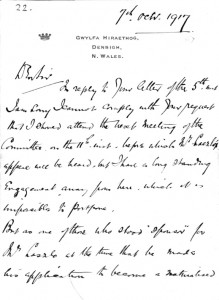 22.
7th Octr. 1917
GWYLFA HIRAETHOG,
DENBIGH,
N. WALES.
Dear Sir
In reply to your letter of the 5th inst
I am sorry I cannot comply with your request
that I should attend the next meeting of the
Committee on the 11th inst. before which Mr Laszlo's
appeal will be heard, but I have a long standing
Engagement away from here, which it is
impossible to postpone.
But as one of those who stood 'sponsor' for
Mr Laszlo at the time that he made
his application to become a naturalised